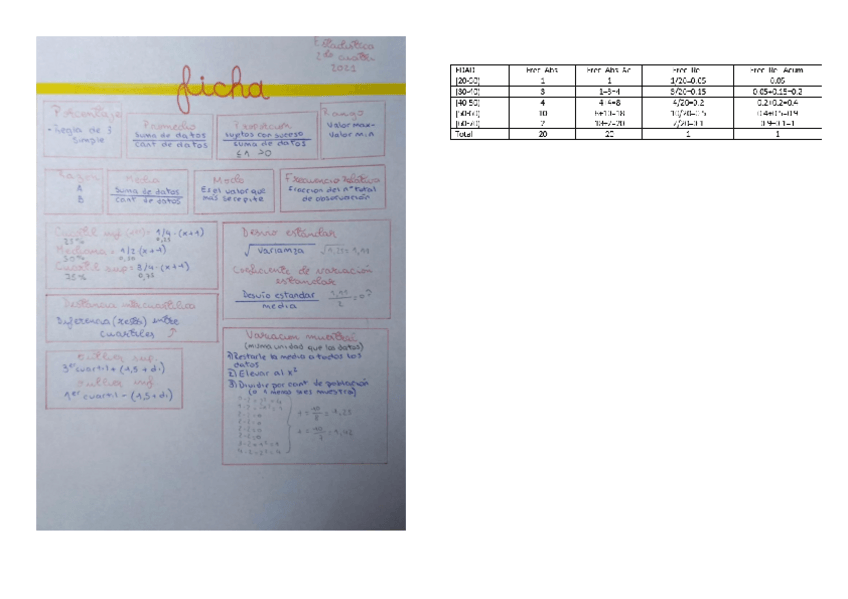 Estadistica
2do cuatri
2021
ficha
Porcentaje
- Regla de 3
simple
Promedio
suma de datos
cant de datos
Proporcion
sujetos con suceso
suma de datos
≤1 >0
Rango
Valor max-
Valor min
Razon
A
B
Media
suma de datos
cant de datos
Modo
Es el valor que
mas se repite
Frecuencia relativa
Fraccion del n° total
de observación
Cuartil inf (di) = 1/4 · (x+1)
25% 0,25
Mediana = 1/2 (x+1)
50%
Cuartil sup = 3/4 · (x+1)
75%
Desvio estandar
√varianza
Coeficiente de variación
estandar
Desvío estandar
media
Distancia intercuartilica
Diferencia (resta) entre
cuartiles
Outlier sup.
3er cuartil + (1,5 + di)
Outlier inf
1er cuartil - (1,5 + di)
(misma unidad que los datos)
1) Restarle la media a todos los
datos
2) Elevar al x²
3) Dividir por cant de población
EDAD Frec Abs Frec Abs Ac
[20-30) 1 1 1/20=0.05 0.05
[30-40) 3 1+3=4 3/20=0.15 0.05+0.15=0.2
[40-50) 4 4+4=8 4/20=0.2 0.2+0.2=0.4
[50-60) 10 8+10=18 10/20=0.5 0.4+0.5=0.9
[60-70) 2 18+2=20 2/20=0.1 0.9+0.1=1
Total 20 20 1 1